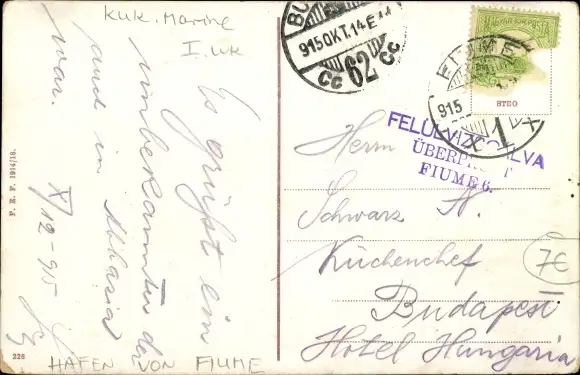 KuK. Marine
I. WK
Es grüßt ein
unbekannter der
auch in Abbazia
war.
X/12-915
F. E. F. 1914/15.
228
HAFEN VON FIUME
9150KT.14E
62
Cc Cc
MAGYAR KIR. POSTA
FIUME
915
1
STEO
FELÜLVIZSGÁLVA
ÜBERPRÜFT
FIUME 6.
Herrn
Schwarz A.
Küchenchef
Budapest
I
Hotel Hungaria
7€